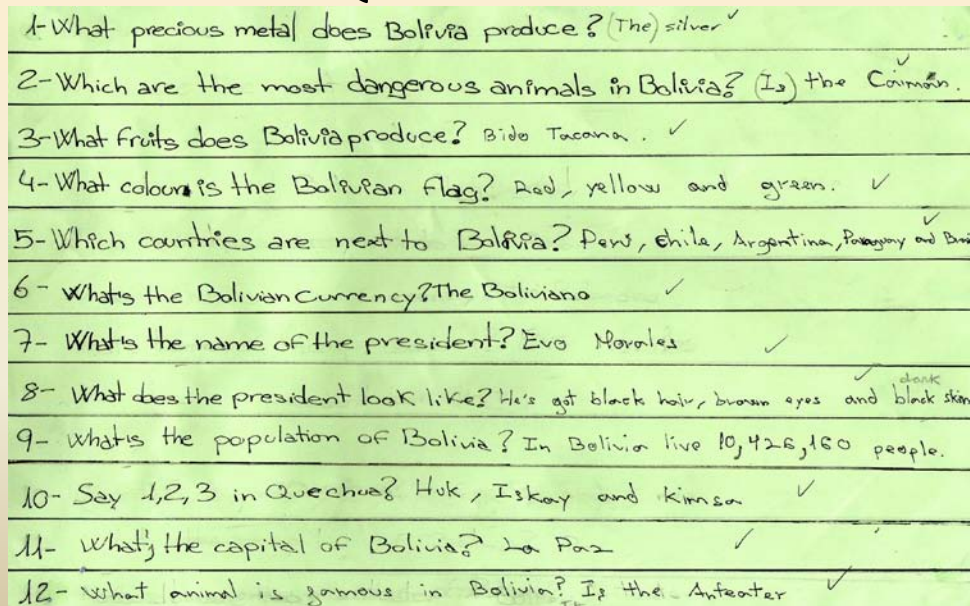 1-What precious metal does Bolivia produce? (The) silver
2-Which are the most dangerous animals in Bolivia? (Is) the Caiman.
3-What fruits does Bolivia produce? Bido Tacana.
4-What colour is the Bolivian flag? Red, yellow and green.
5-Which countries are next to Bolivia? Perú, Chile, Argentina, Paraguay and
6- What's the Bolivian Currency? The Boliviano
7- What's the name of the president? Evo Morales
8- What does the president look like? He's got black hair, brown eyes and black skin
dark
9- What's the population of Bolivia? In Bolivia live 10,426,160 people.
10- Say 1,2,3 in Quechua? Huk, Iskay and Kimsa
11- What's the capital of Bolivia? La Paz
12- What animal is famous in Bolivia? Is the Anteater